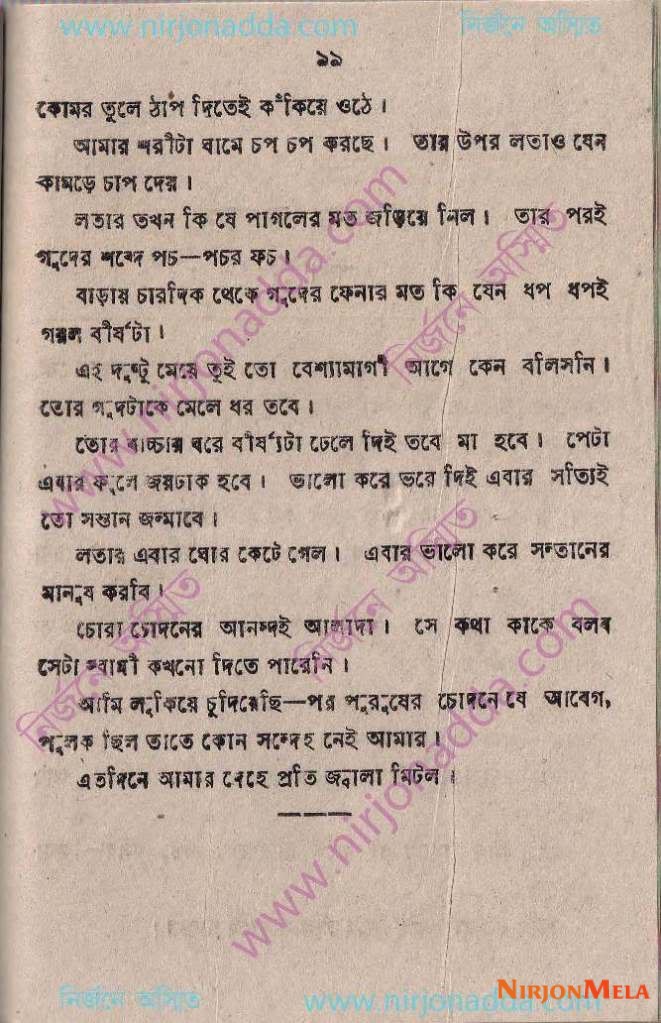 www.nirjonadda.com নির্জনে অস্মিত
৯৯
কোমর তুলে ঠাপ দিতেই কঁকিয়ে ওঠে।
আমার শরীটা ঘামে চপ চপ করছে। তার উপর লতাও যেন
কামড়ে চাপ দেয়।
লতার তখন কি যে পাগলের মত জড়িয়ে নিল। তার পরই
গুদের শব্দে পচ—পচর ফচ।
বাড়ায় চারদিক থেকে গুদের ফেনার মত কি যেন ধপ ধপই
গরল বীর্ষটা।
এই দুষ্টু মেয়ে তুই তো বেশ্যামাগী আগে কেন বলিসনি।
তোর গুদটাকে মেলে ধর তবে।
তোর বাচ্চার ঘরে বীর্ষ্যটা ঢেলে দিই তবে মা হবে। পেটা
এবার ফুলে জয়ঢাক হবে। ভালো করে ভরে দিই এবার সত্যিই
তো সন্তান জন্মাবে।
লতার এবার ঘোর কেটে গেল। এবার ভালো করে সন্তানের
মানুষ করবি।
চোরা চোদনের আনন্দই আলাদা। সে কথা কাকে বলব
সেটা স্বামী কখনো দিতে পারেনি।
আমি লুকিয়ে চুদিয়েছি—পর পুরুষের চোদনে যে আবেগ,
পুলক ছিল তাতে কোন সন্দেহ নেই আমার।
এতদিনে আমার দেহে প্রতি জ্বালা মিটল।
www.nirjonadda.com
নির্জনে অস্মিত
নির্জনে অস্মিত
নির্জনে অস্মিত
www.nirjonadda.com
নির্জনে অস্মিত www.nirjonadda.com
NIRJONMELA